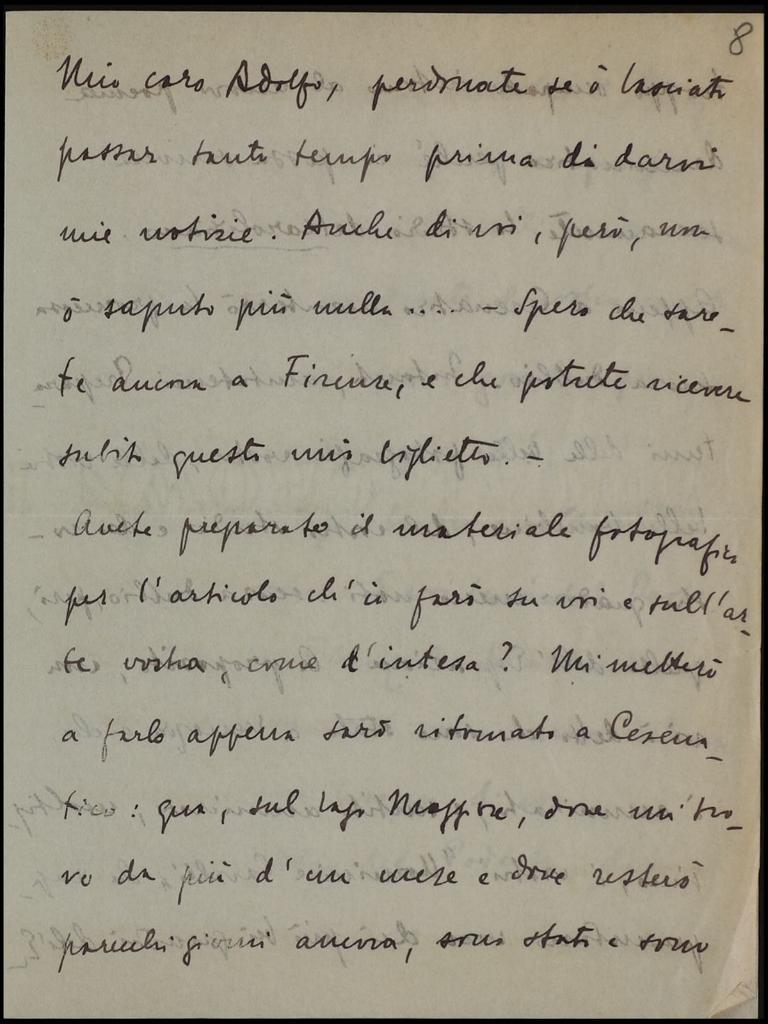 8
Mio caro Adolfo, perdonate se ò lasciato
passar tanto tempo prima di darvi
mie notizie. Anche di voi, però, non
ò saputo più nulla .... - Spero che sare-
te ancora a Firenze, e che potrete ricevere
subito questo mio biglietto. -
Avete preparato il materiale fotografico
per l'articolo ch'io farò su voi e sull'ar-
te vostra, come d'intesa? Mi metterò
a farlo appena sarò ritornato a Cesena-
tico: qua, sul Lago Maggiore, dove mi tro-
vo da più d'un mese e dove resterò
parecchi giorni ancora, sono stato e sono